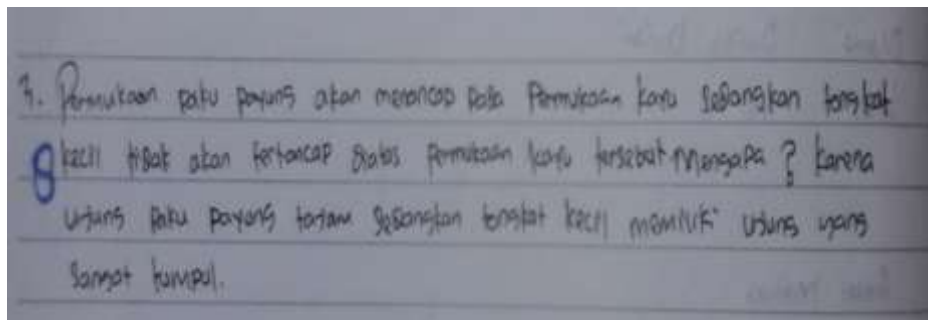 3. Permukaan paku payung akan menancap pada Permukaan kayu sedangkan tongkat
8 kecil tidak akan tertancap diatas permukaan kayu tersebut Mengapa? karena
ujung paku payung tajam sedangkan tongkat kecil memiliki ujung yang
sangat tumpul.